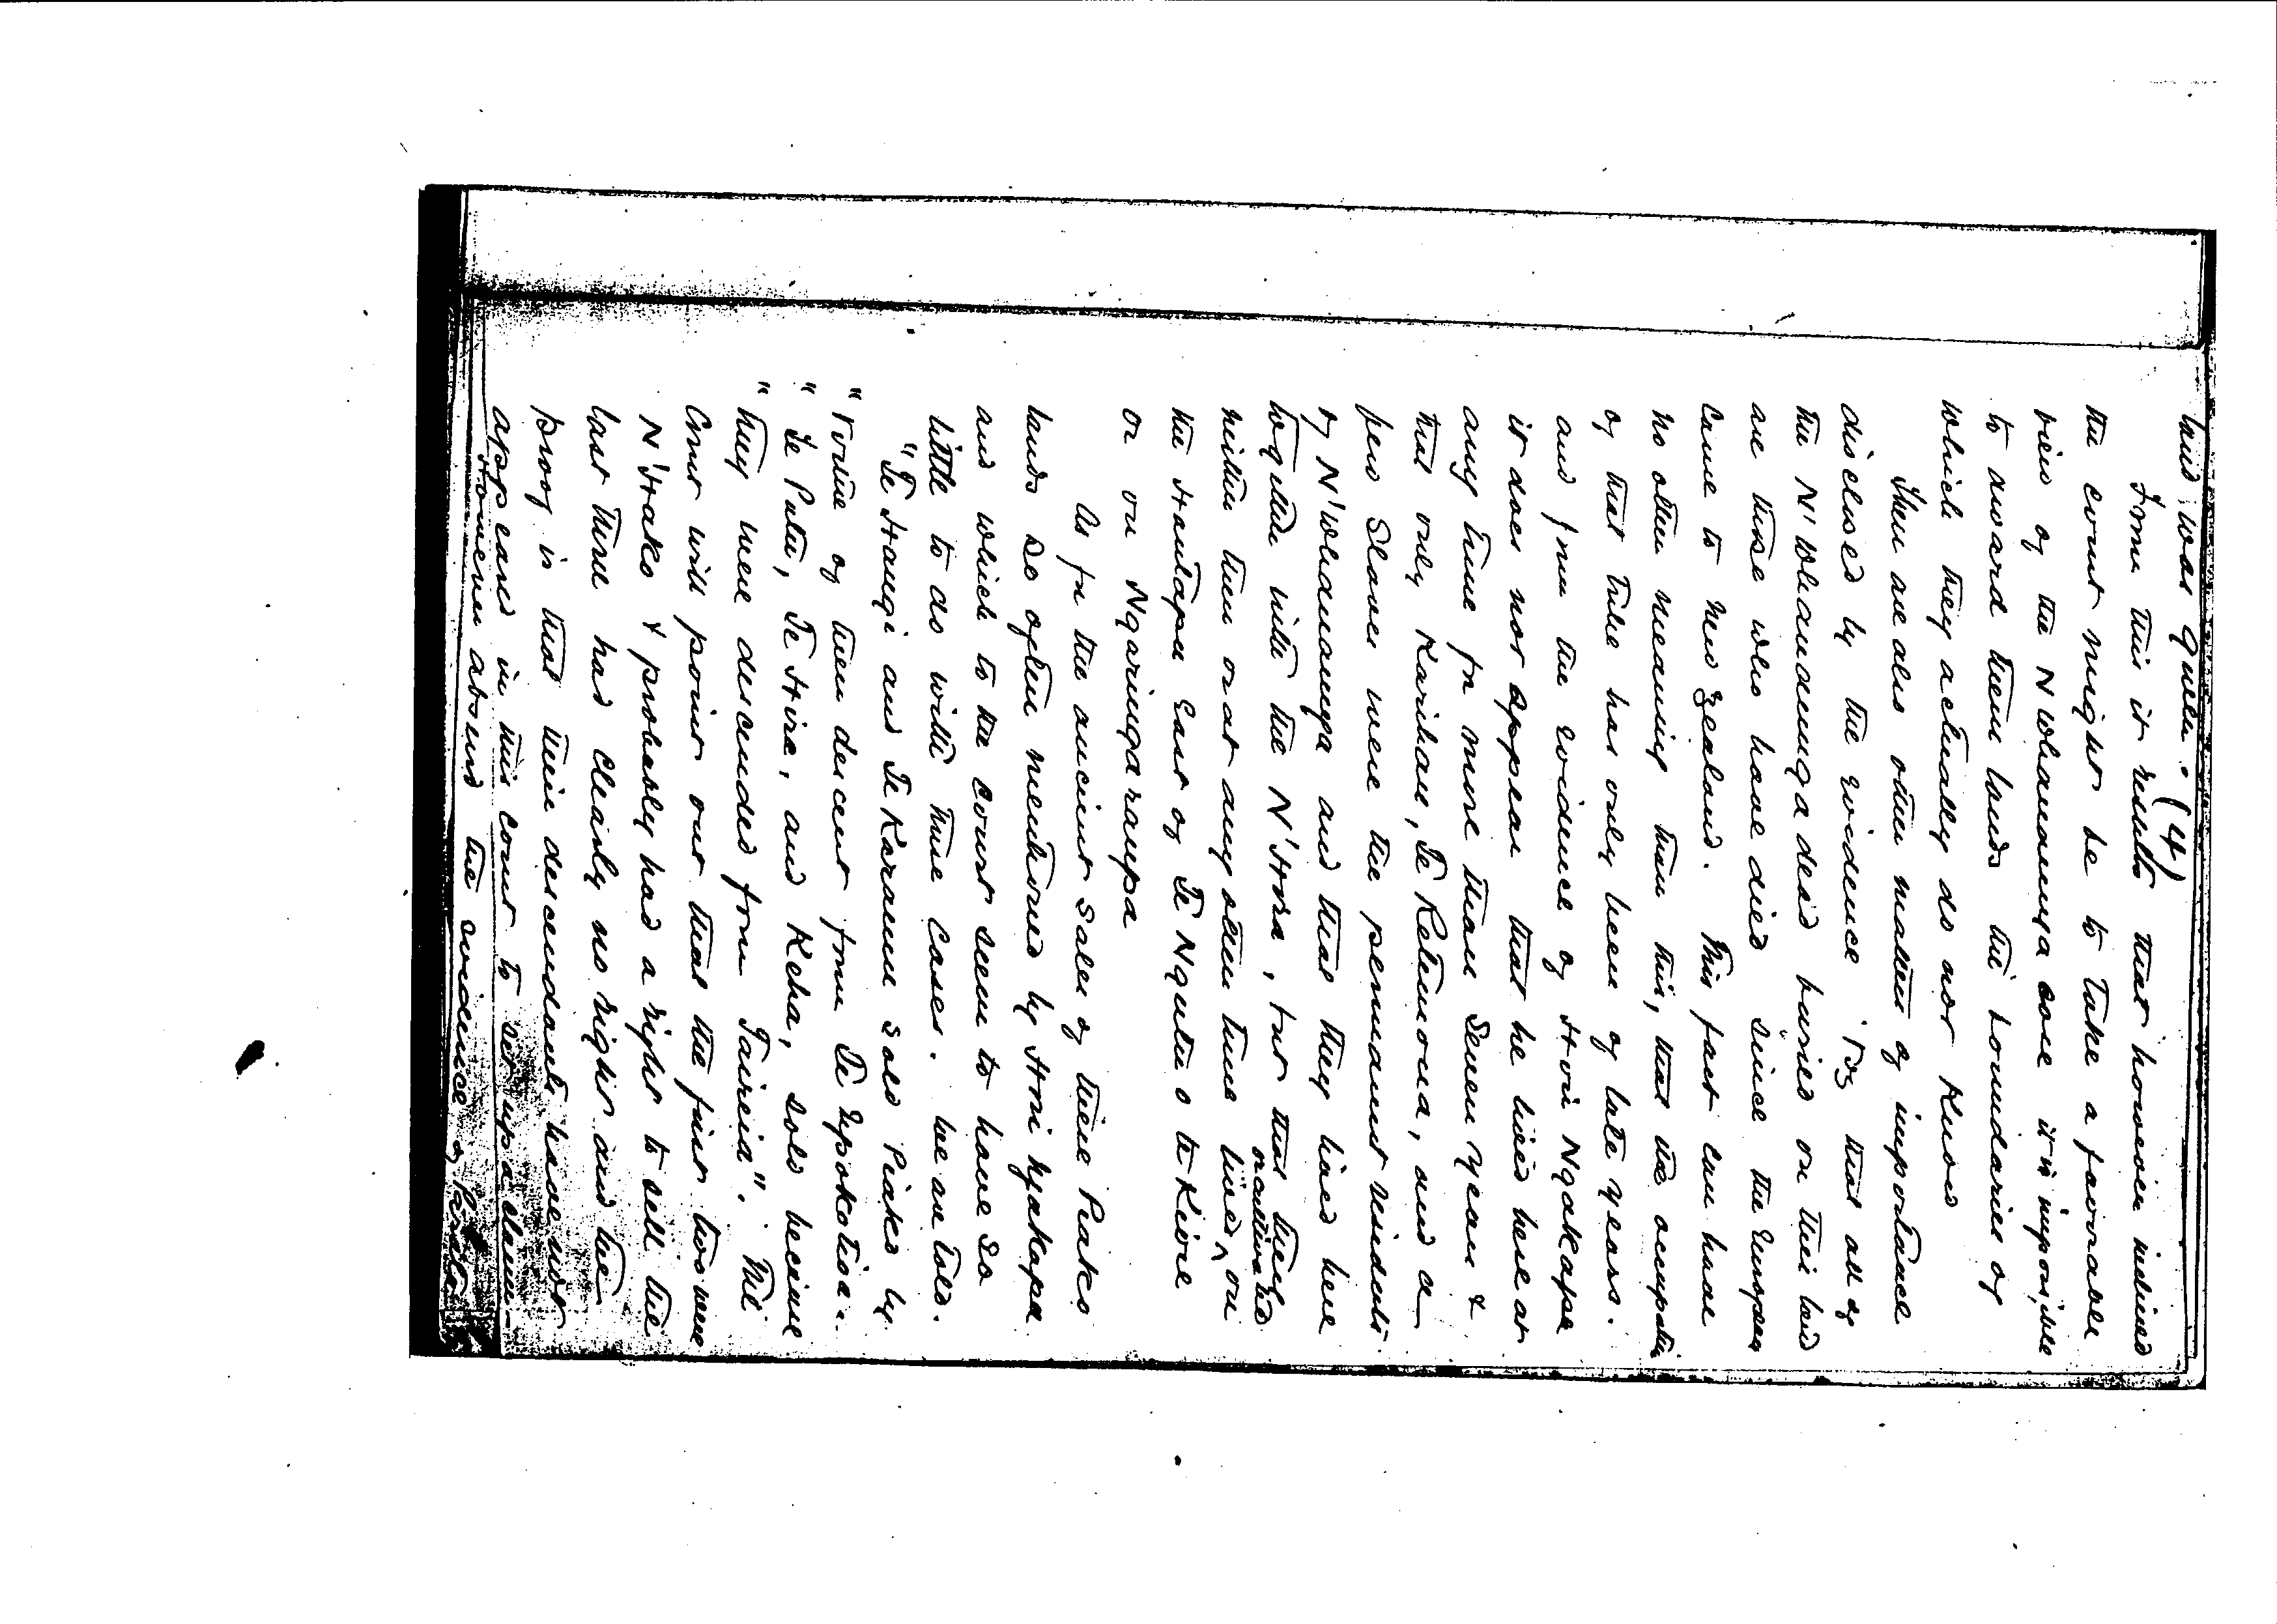 (4)
land was given.
From this it results that however inclined
the court might be to take a favorable
view of the N'Whanaunga case it is impossible
to award them lands the boundaries of
which they actually do not know
There are also other matters of importance
disclosed by the evidence. Viz that all of
the N'Whanaunga dead buried on this land
are those who have died since the European
came to New Zealand. This fact can have
no other meaning than this, that the occupation
of that tribe has only been of late years.
and from the evidence of Hori Ngakapa
it does not appear that he lived here at
any time for more than seven years &
that only Karihau, Te Retimona, and a
few slaves were the permanent residents
of N'Whanaunga and that they lived here
together with the N'Hura, but that they
neither then or at any other time lived ^ or cultivated on
the Hautapu East of Te Ngutu o te Kiore
or on Ngaringaraupa
As for the ancient sales of these Piako
lands so often mentioned by Hori Ngakapa
and which to the court seem to have so
little to do with these cases. We are told.
"Te Hangi and Te Karamu sold Piako by
"virtue of their descent from Te Upokotiia..
"Te Patu, Te Hira, and Keha, sold because
"they were descended from Tairiia". The
Court will point out that the first two were
N'Hako & probably had a right to sell the
last three had clearly no right and the
proof is that their descendants have not
appeared in this court to set up a claim-
However absurd the evidence of